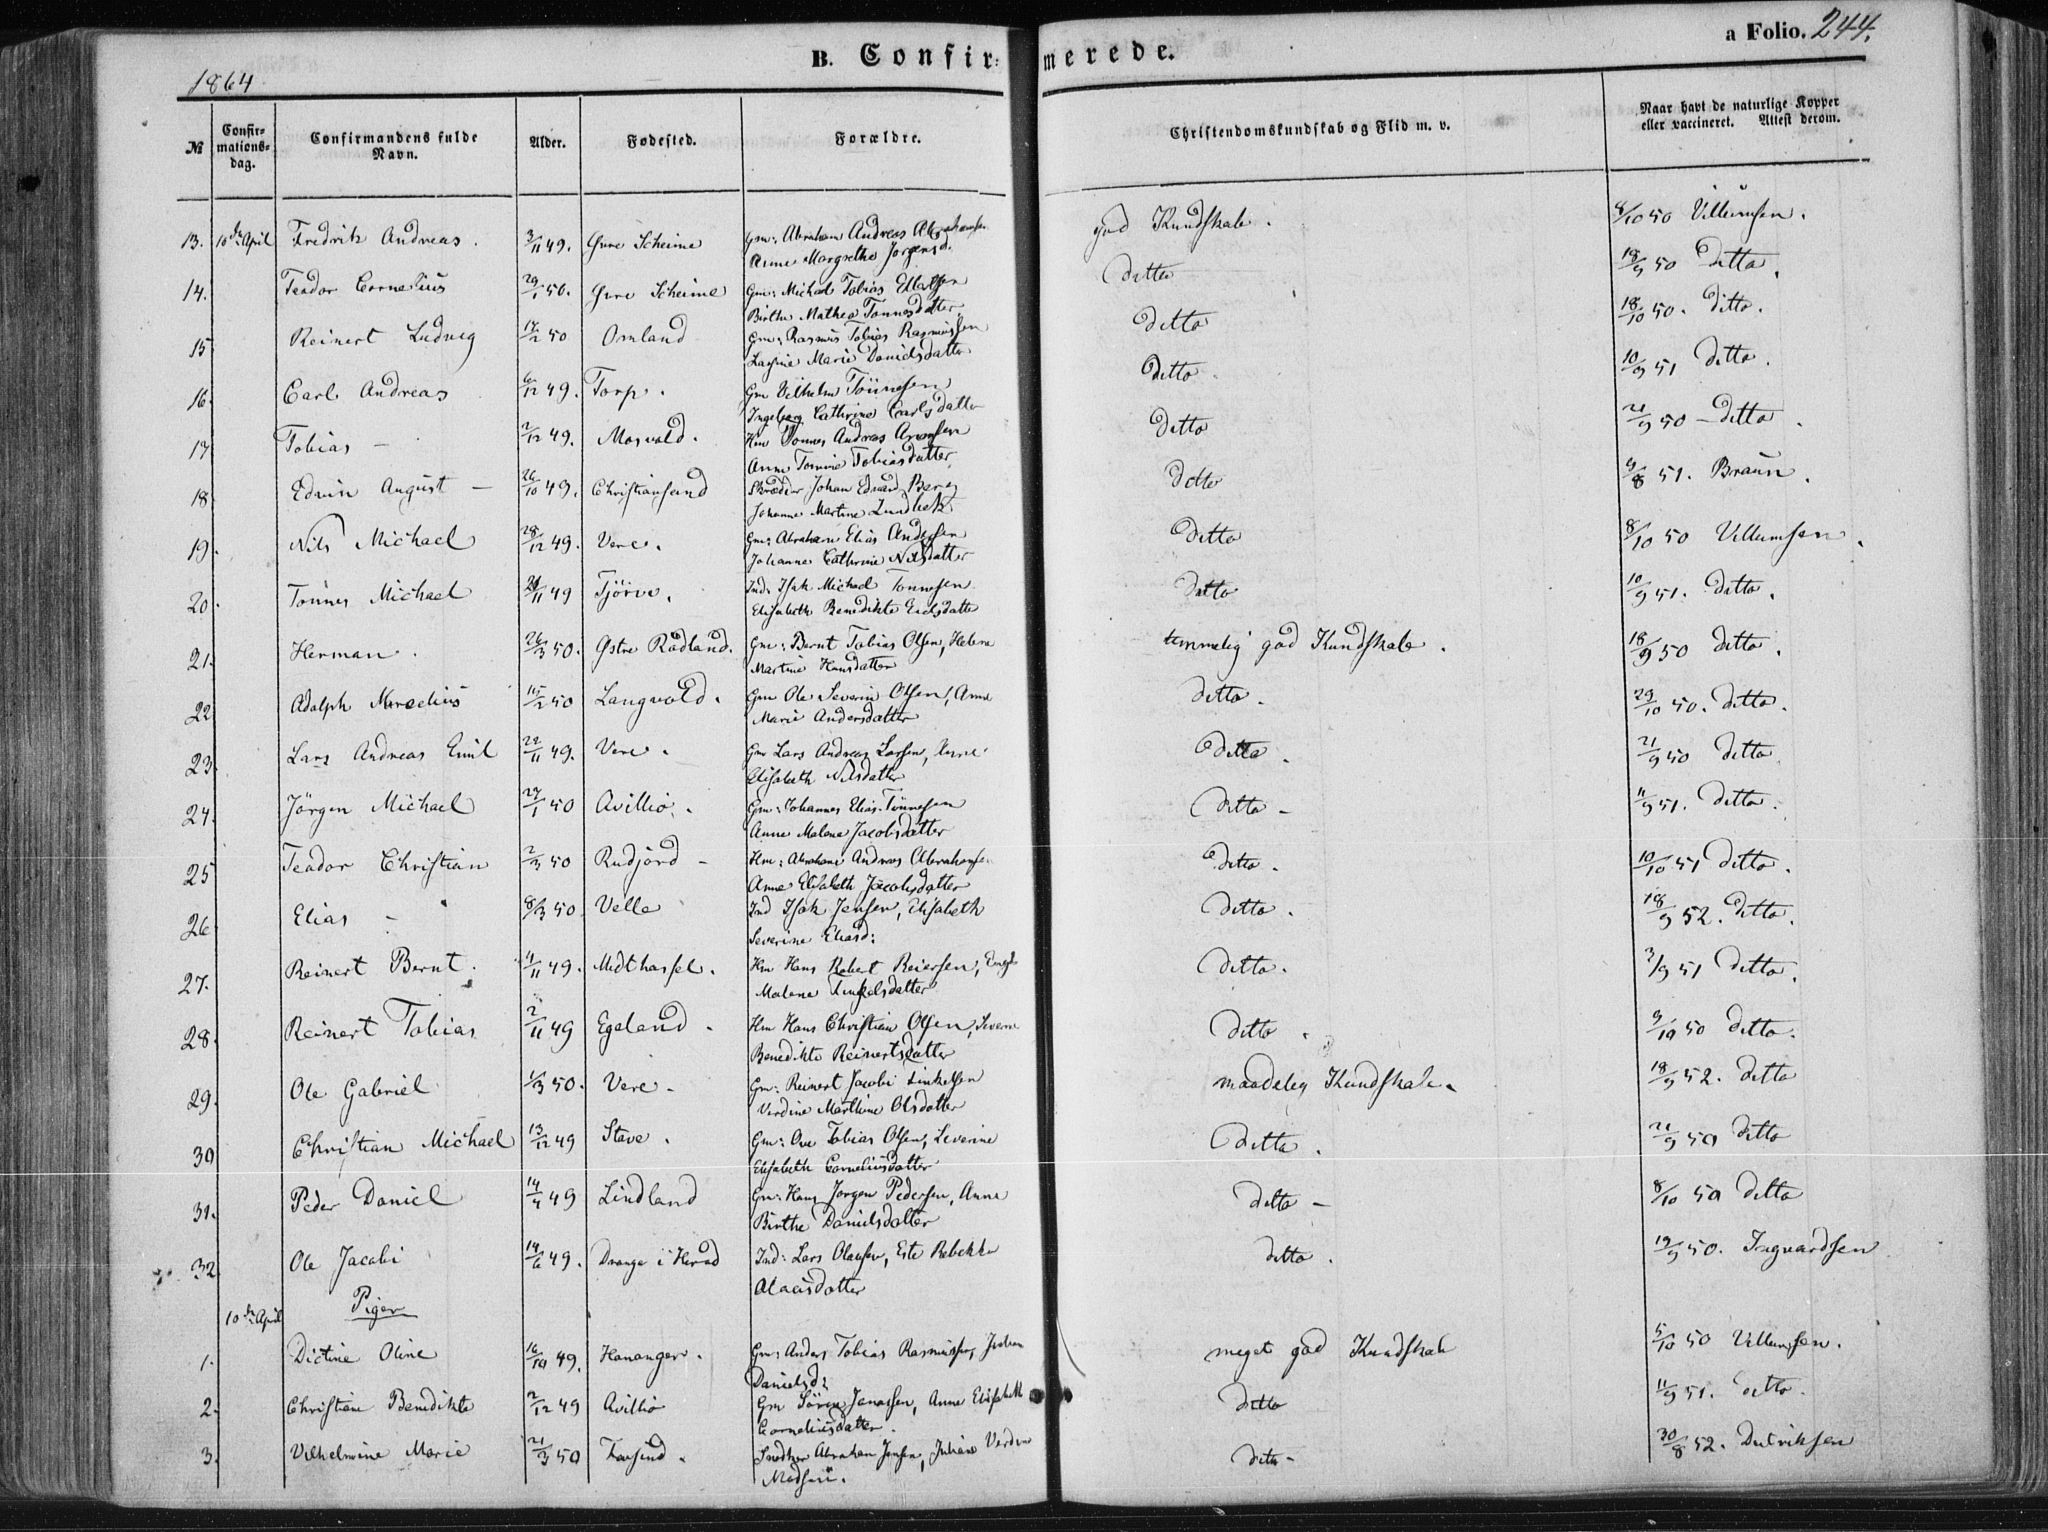 B. Confirmerede.
a Folio. 244.
1864
№ Confirmationsdag. Confirmandens fulde Navn. Alder. Fødested. Forældre. Christendomskundskab og Flid m. v. Naar havt de naturlige Kopper eller vaccineret. Attest derom.
13. 10de April Fredrik Andreas. 3/11 49. Øvre Scheime Gm: Abraham Andreas Abrahamsen god Kundskab. 8/10 50 Villumsen.
Anne Margrethe Jørgensd.
14. Teodor Cornelius 29/1 50. Øvre Scheime Gm: Michael Tobias Ellefsen ditto 18/9 50 ditto.
Birthe Mathea Tønnesdatter
15. Reinert Ludvig 17/2 50 Omland Gm: Rasmus Tobias Rasmussen ditto 18/10 50. ditto.
Marie Danielsdatter
16. Carl Andreas 6/12 49. Torp. Gm Vilhelm Tönnesen ditto. 10/9 51 ditto.
Ingeborg Cathrine Carlsdatter
17 Tobias - 2/12 49. Mosvold. Hm Tonnes Andreas ditto 21/9 50 - ditto.
Anne Tomine Tobiasdatter
18 Edvin August - 26/10 49. Christiansand Skrædder Johan Edvard Berg ditto 9/8 51. Braun.
Johanne Martine Lundbek
19. Nils Michael 28/12 49. Vere. Gm: Abraham Elias Andersen ditto 8/10 50 Villumsen.
Johanne Cathrine Nilsdatter
20. Tönnes Michael 21/11 49 Tjörve. Ind: Isak Michael Tonnesen ditto 10/9 51. ditto.
Elisabeth Benedikte
21. Herman. 26/3 50. Østre Rødland. Gm: Bernt Tobias Olsen, Helene temmelig god Kundskab. 18/9 50 ditto.
Martine Hansdatter
22 Adolph Marcelius 15/2 50 Langvold. Gm Ole Severin Olsen, Anne ditto. 29/10 50. ditto.
Marie Andersdatter
23. Lars Andreas Emil 22/11 49. Vere. Gm Lars Andreas Larsen, Anne ditto. 21/9 50 ditto.
Elisabeth Nilsdatter
24. Jörgen Michael 27/1 50 Avillio. Gm: Johannes Elias Tönnesen ditto - 11/9 51. ditto.
Anne Malene Jacobsdatter
25 Teodor Christian 2/3 50 Rudjord - Hm: Abraham Andreas Abrahamsen ditto. 10/10 51 ditto.
Anne Elisabeth Jacobsdatter
26 Elias - 8/3 50 Velle Ind Isak Jensen, Elisabeth ditto. 18/9 52. ditto.
Severine Eliasd:
27. Reinert Bernt. 4/11 49. Midthassel. Hm Hans Robert Reiersen, ditto. 3/9 51 ditto.
Malene
28. Reinert Tobias 2/11 49 Egeland. Hm Hans Christian Olsen, Severine ditto. 9/10 50 ditto.
Benedikte Reinertsdatter
29. Ole Gabriel 1/3 50. Vere - Gm: Reinert Jacobi maadelig Kundskab. 18/9 52. ditto
Verdine Marthine Olsdatter
30 Christian Michael 13/12 49 Stave. Gm: Ove Tobias Olsen, Severine ditto. 21/9 50 ditto
Elisabeth Corneliusdatter
31. Peder Daniel 14/4 49 Lindland Gm: Hans Jørgen Pedersen, Anne ditto - 8/10 50 ditto
Birthe Danielsdatter
32. Ole Jacobi 14/6 49. Drange i Herad Ind: Lars Olausen, Rebekka ditto. 19/9 50. Ingvardsen
10de April Piger
1. Dictine Oline 16/10 49. Hananger. Gm: Anders Tobias Rasmussen, meget god Kundskab 5/10 50 Villumsen.
Danielsd:
2. Christiane Benedikte 2/12 49 Avillio Gm Sören Jonassen, Anne Elisabeth ditto 11/9 51. ditto.
Corneliusdatter.
3. Vilhelmine Marie 21/3 50 Farsund. Snedker Abraham Jensen, Juliane Verdine ditto - 30/8 52. Didriksen
Madsen.